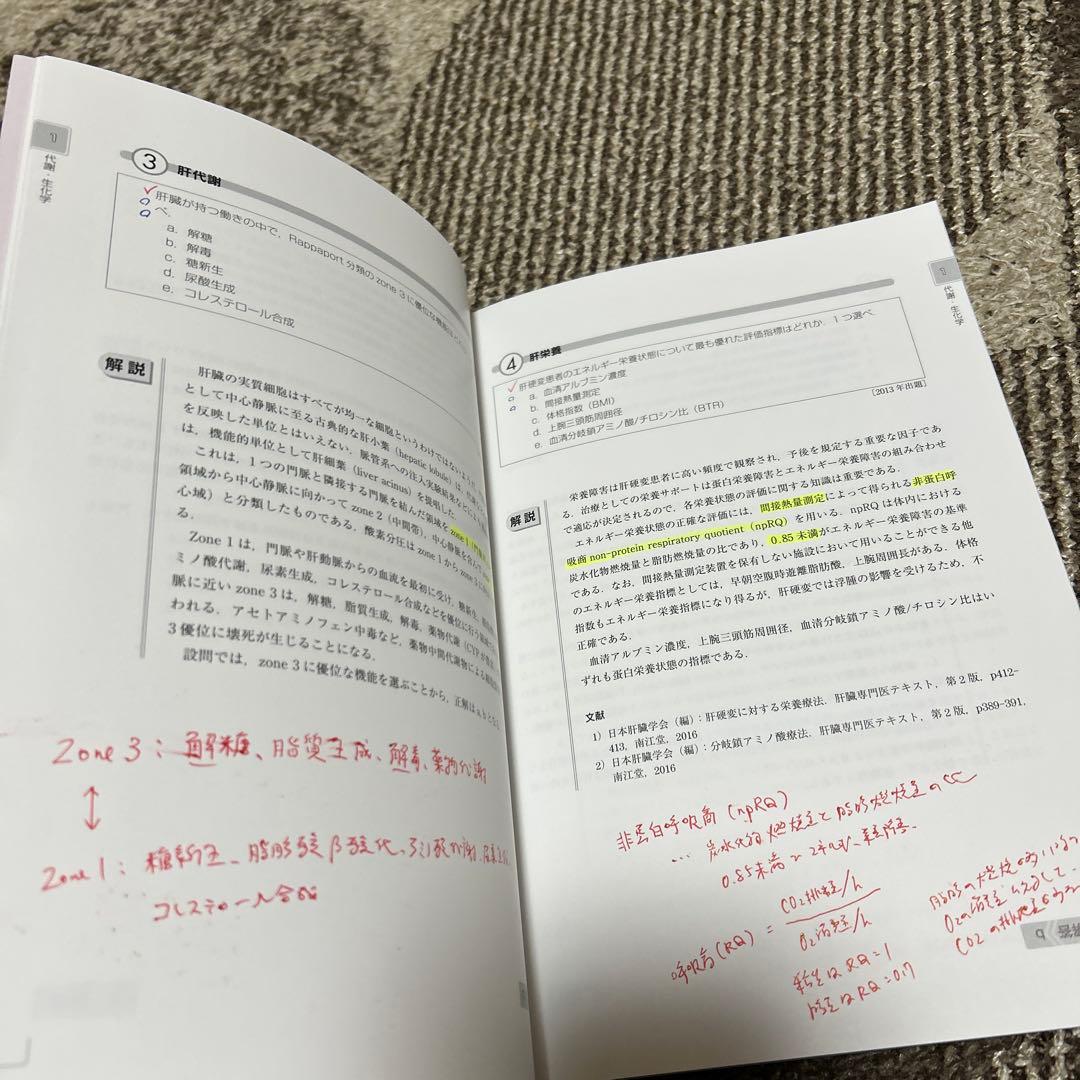 1
代謝・生化学
3 肝代謝
肝臓が持つ働きの中で，Rappaport 分類の zone 3 に優位な機能は
べ．
a. 解糖
b. 解毒
c. 糖新生
d. 尿酸生成
e. コレステロール合成
解説
肝臓の実質細胞はすべてが均一な細胞というわけではない
として中心静脈に至る古典的な肝小葉（hepatic lobule）は，
を反映した単位とはいえない．脈管系への注入実験結果などに
は，機能的単位として肝細葉（liver acinus）を提唱した．
これは，1つの門脈と隣接する門脈を結んだ領域を zone 1
領域から中心静脈に向かって zone 2（中間帯），中心静脈を含んで
心域）と分類したものである．酸素分圧は zone 1 から zone 3 に
る．
Zone 1 は，門脈や肝動脈からの血流を最初に受け，糖新生，
ミノ酸代謝，尿素生成，コレステロール合成などを優位に行う領域で
脈に近い zone 3 は，解糖，脂質生成，解毒，薬物代謝（CYP
われる．アセトアミノフェン中毒など，薬物中間代謝物による
3 優位に壊死が生じることになる．
設問では，zone 3 に優位な機能を選ぶことから，正解は a, b
Zone 3：解糖、脂質生成、解毒、薬物代謝
Zone 1：糖新生、脂肪酸β酸化、
コレステロール合成
1
代謝・生化学
4 肝栄養
肝硬変患者のエネルギー栄養状態について最も優れた評価指標はどれか．1つ選べ．
a. 血清アルブミン濃度
b. 間接熱量測定
c. 体格指数（BMI）
d. 上腕三頭筋周囲径
e. 血清分岐鎖アミノ酸/チロシン比（BTR）
［2013 年出題］
解説
栄養障害は肝硬変患者に高い頻度で観察され，予後を規定する重要な因子であ
る．治療としての栄養サポートは蛋白栄養障害とエネルギー栄養障害の組み合わせ
で適応が決定されるので，各栄養状態の評価に関する知識は重要である．
エネルギー栄養状態の正確な評価には，間接熱量測定によって得られる非蛋白呼
吸商 non-protein respiratory quotient（npRQ）を用いる．npRQ は体内における
炭水化物燃焼量と脂肪燃焼量の比であり，0.85 未満がエネルギー栄養障害の基準
である．なお，間接熱量測定装置を保有しない施設において用いることができる他
のエネルギー栄養指標としては，早朝空腹時遊離脂肪酸，上腕周囲長がある．体格
指数もエネルギー栄養指標になり得るが，肝硬変では浮腫の影響を受けるため，不
正確である．
血清アルブミン濃度，上腕三頭筋周囲径，血清分岐鎖アミノ酸/チロシン比はい
ずれも蛋白栄養状態の指標である．
文献
1）日本肝臓学会（編）：肝硬変に対する栄養療法．肝臓専門医テキスト，第 2 版，p412–
413，南江堂，2016
2）日本肝臓学会（編）：分岐鎖アミノ酸療法．肝臓専門医テキスト，第 2 版，p389–391，
南江堂，2016
非蛋白呼吸商（npRQ）
… 炭水化物燃焼量と脂肪燃焼量の比
0.85未満
呼吸商（RQ）＝ CO2排泄量/h
O2消費量/h
RQ＝1
RQ＝0.7
脂肪の燃焼
O2の消費
CO2の排泄量
解答 b